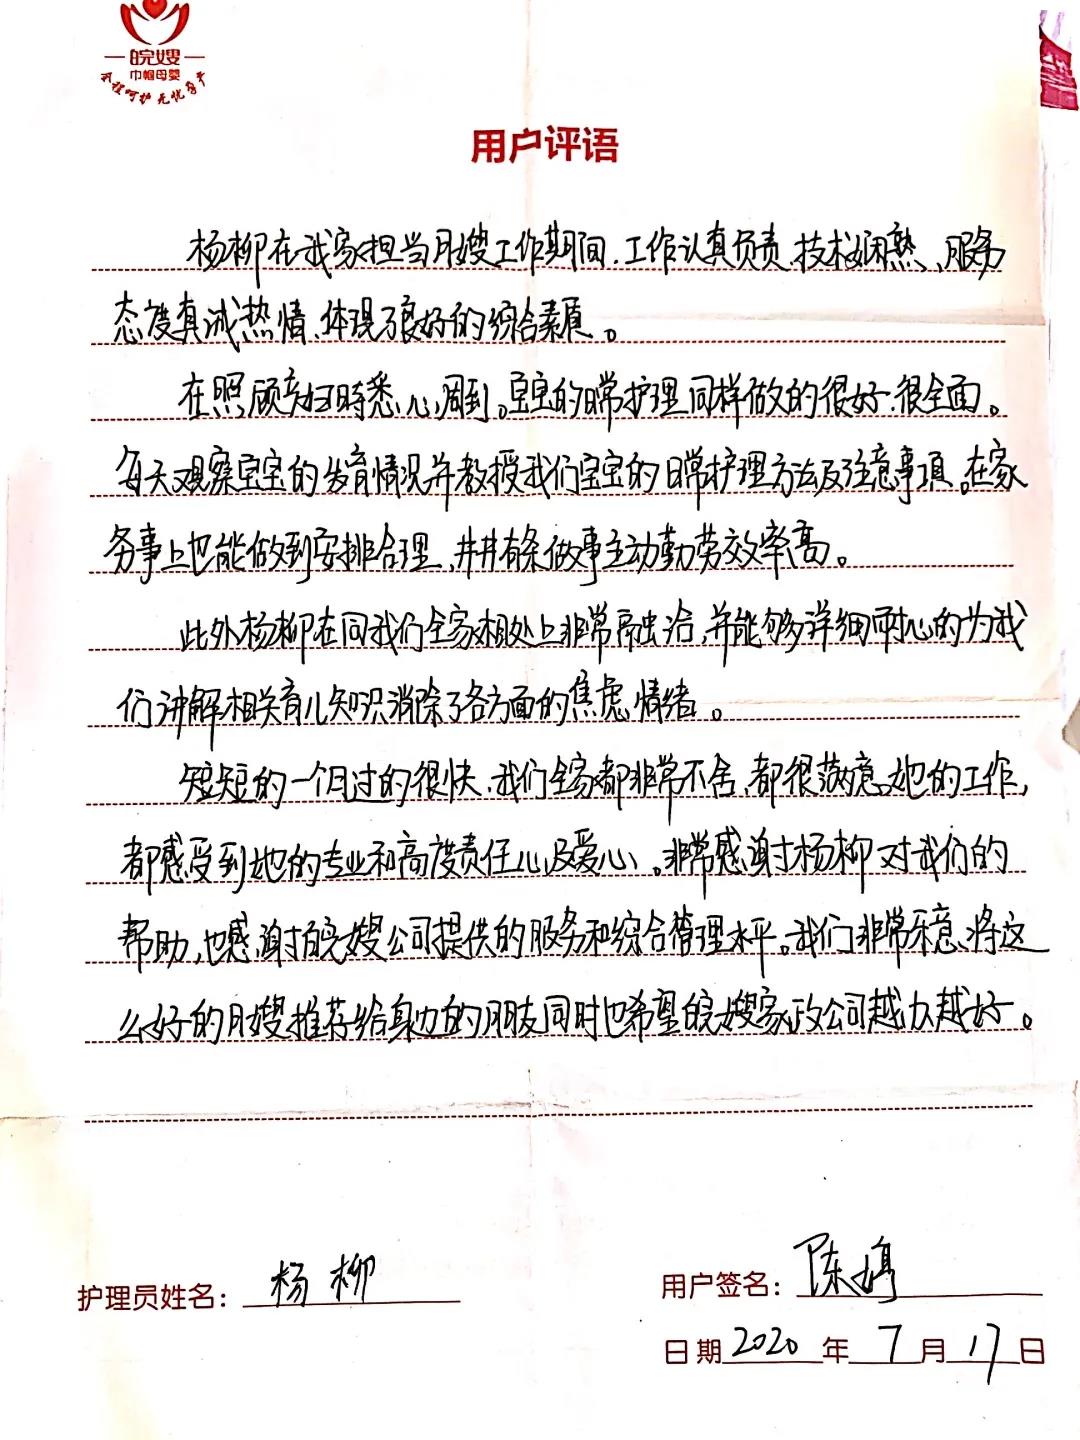 皖嫂
巾帼母婴
全程呵护 无忧孕产
用户评语
杨柳在我家担当月嫂工作期间.工作认真负责.技术娴熟、服务
态度真诚热情.体现了良好的综合素质。
在照顾产妇时悉心周到。宝宝的日常护理同样做的很好.很全面。
每天观察宝宝的发育情况并教授我们宝宝的日常护理方法及注意事项。在家
务事上也能做到安排合理,井井有条做事主动勤劳效率高。
此外杨柳在同我们全家相处上非常融洽.并能够详细耐心的为我
们讲解相关育儿知识消除了各方面的焦虑情绪。
短短的一个月过的很快.我们全家都非常不舍.都很满意她的工作,
都感受到她的专业和高度责任心及爱心、。非常感谢杨柳对我们的
帮助,也感谢皖嫂公司提供的服务和综合管理水平。我们非常乐意、将这
么好的月嫂推荐给身边的朋友同时也希望皖嫂家政公司越办越好。
护理员姓名：杨柳
用户签名：陈娉
日期 2020 年 7 月 17 日